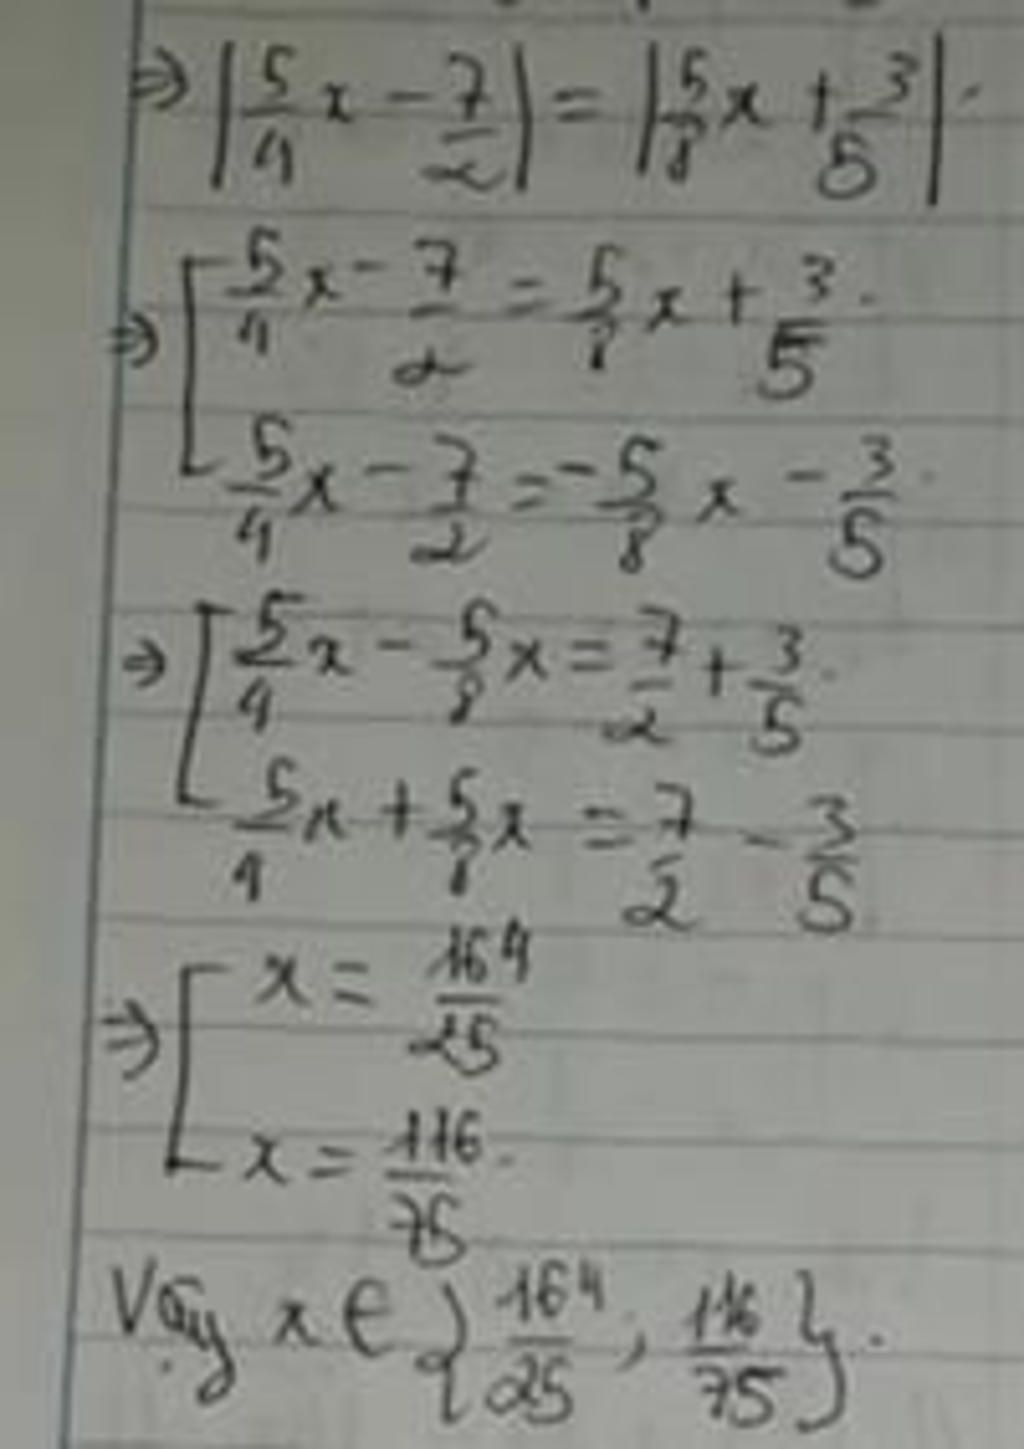 ⇒ |5/4 x - 7/2| = |5/8 x + 3/5|.
⇒ [ 5/4 x - 7/2 = 5/8 x + 3/5.
5/4 x - 7/2 = -5/8 x - 3/5.
⇒ [ 5/4 x - 5/8 x = 7/2 + 3/5.
5/4 x + 5/8 x = 7/2 - 3/5
⇒ [ x = 164/25
x = 116/75.
Vậy x ∈ {164/25, 116/75}.